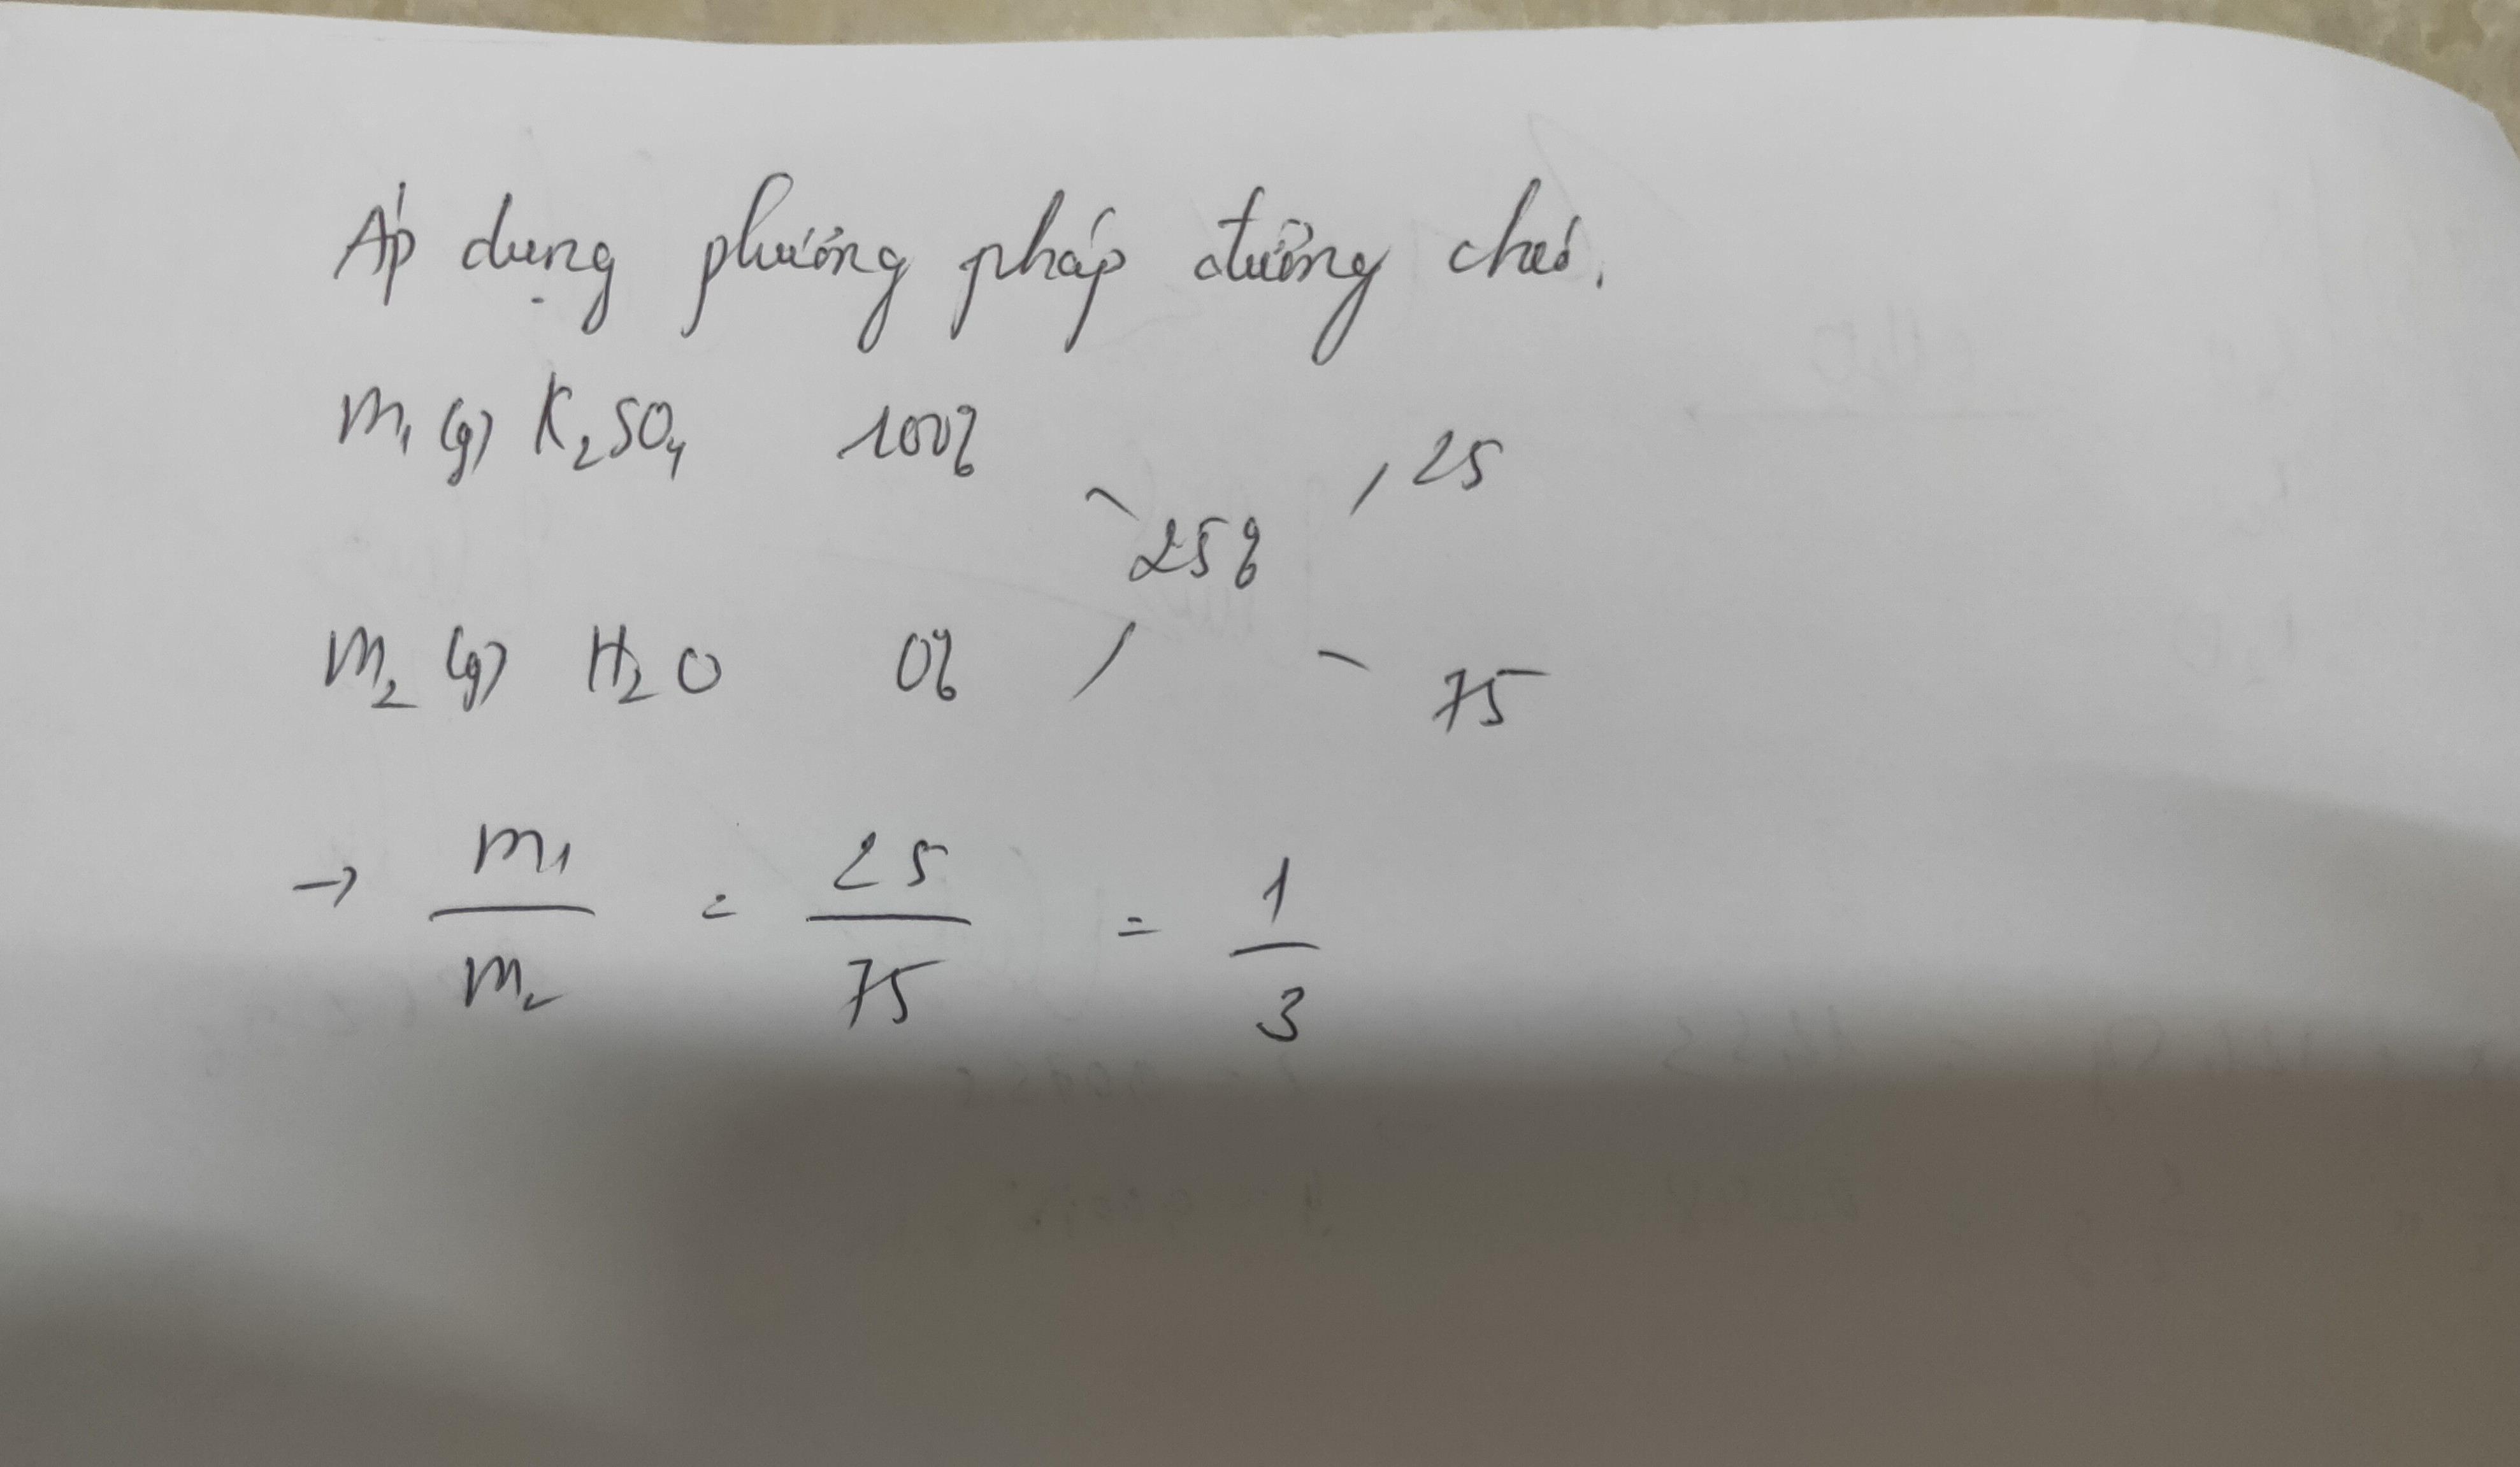 Áp dụng phương pháp đường chéo.
m₁ (g) K₂SO₄ 100% 25
25%
m₂ (g) H₂O 0% 75
→ m₁/m₂ = 25/75 = 1/3